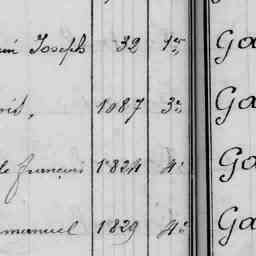 Joseph 32 1er Ga
1087 3e Ga
françois 1824 4e Ga
manuel 1829 4e Ga